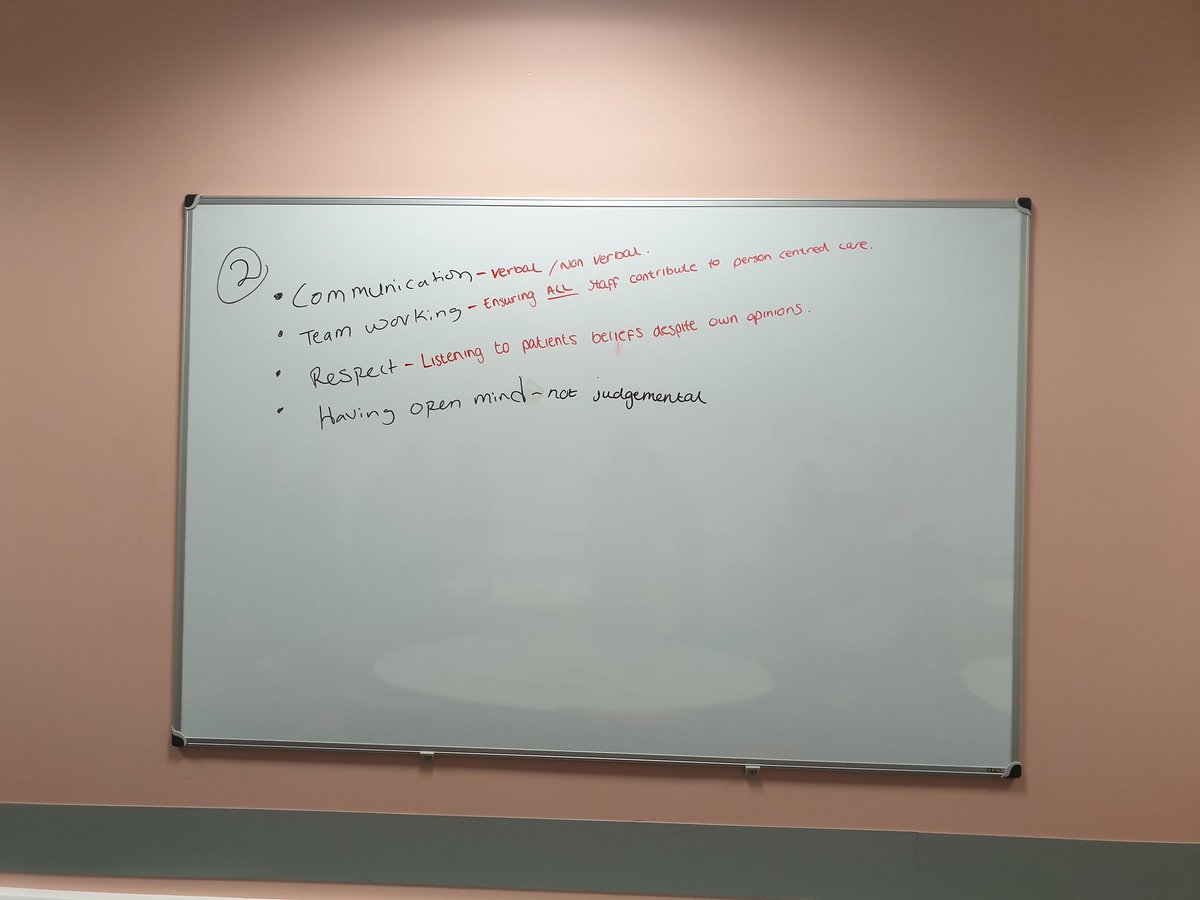 2
• Communication - verbal / Non verbal.
• Team working - Ensuring ALL staff contribute to person centred care.
• Respect - Listening to patients beliefs despite own opinions.
• Having open mind - not judgemental